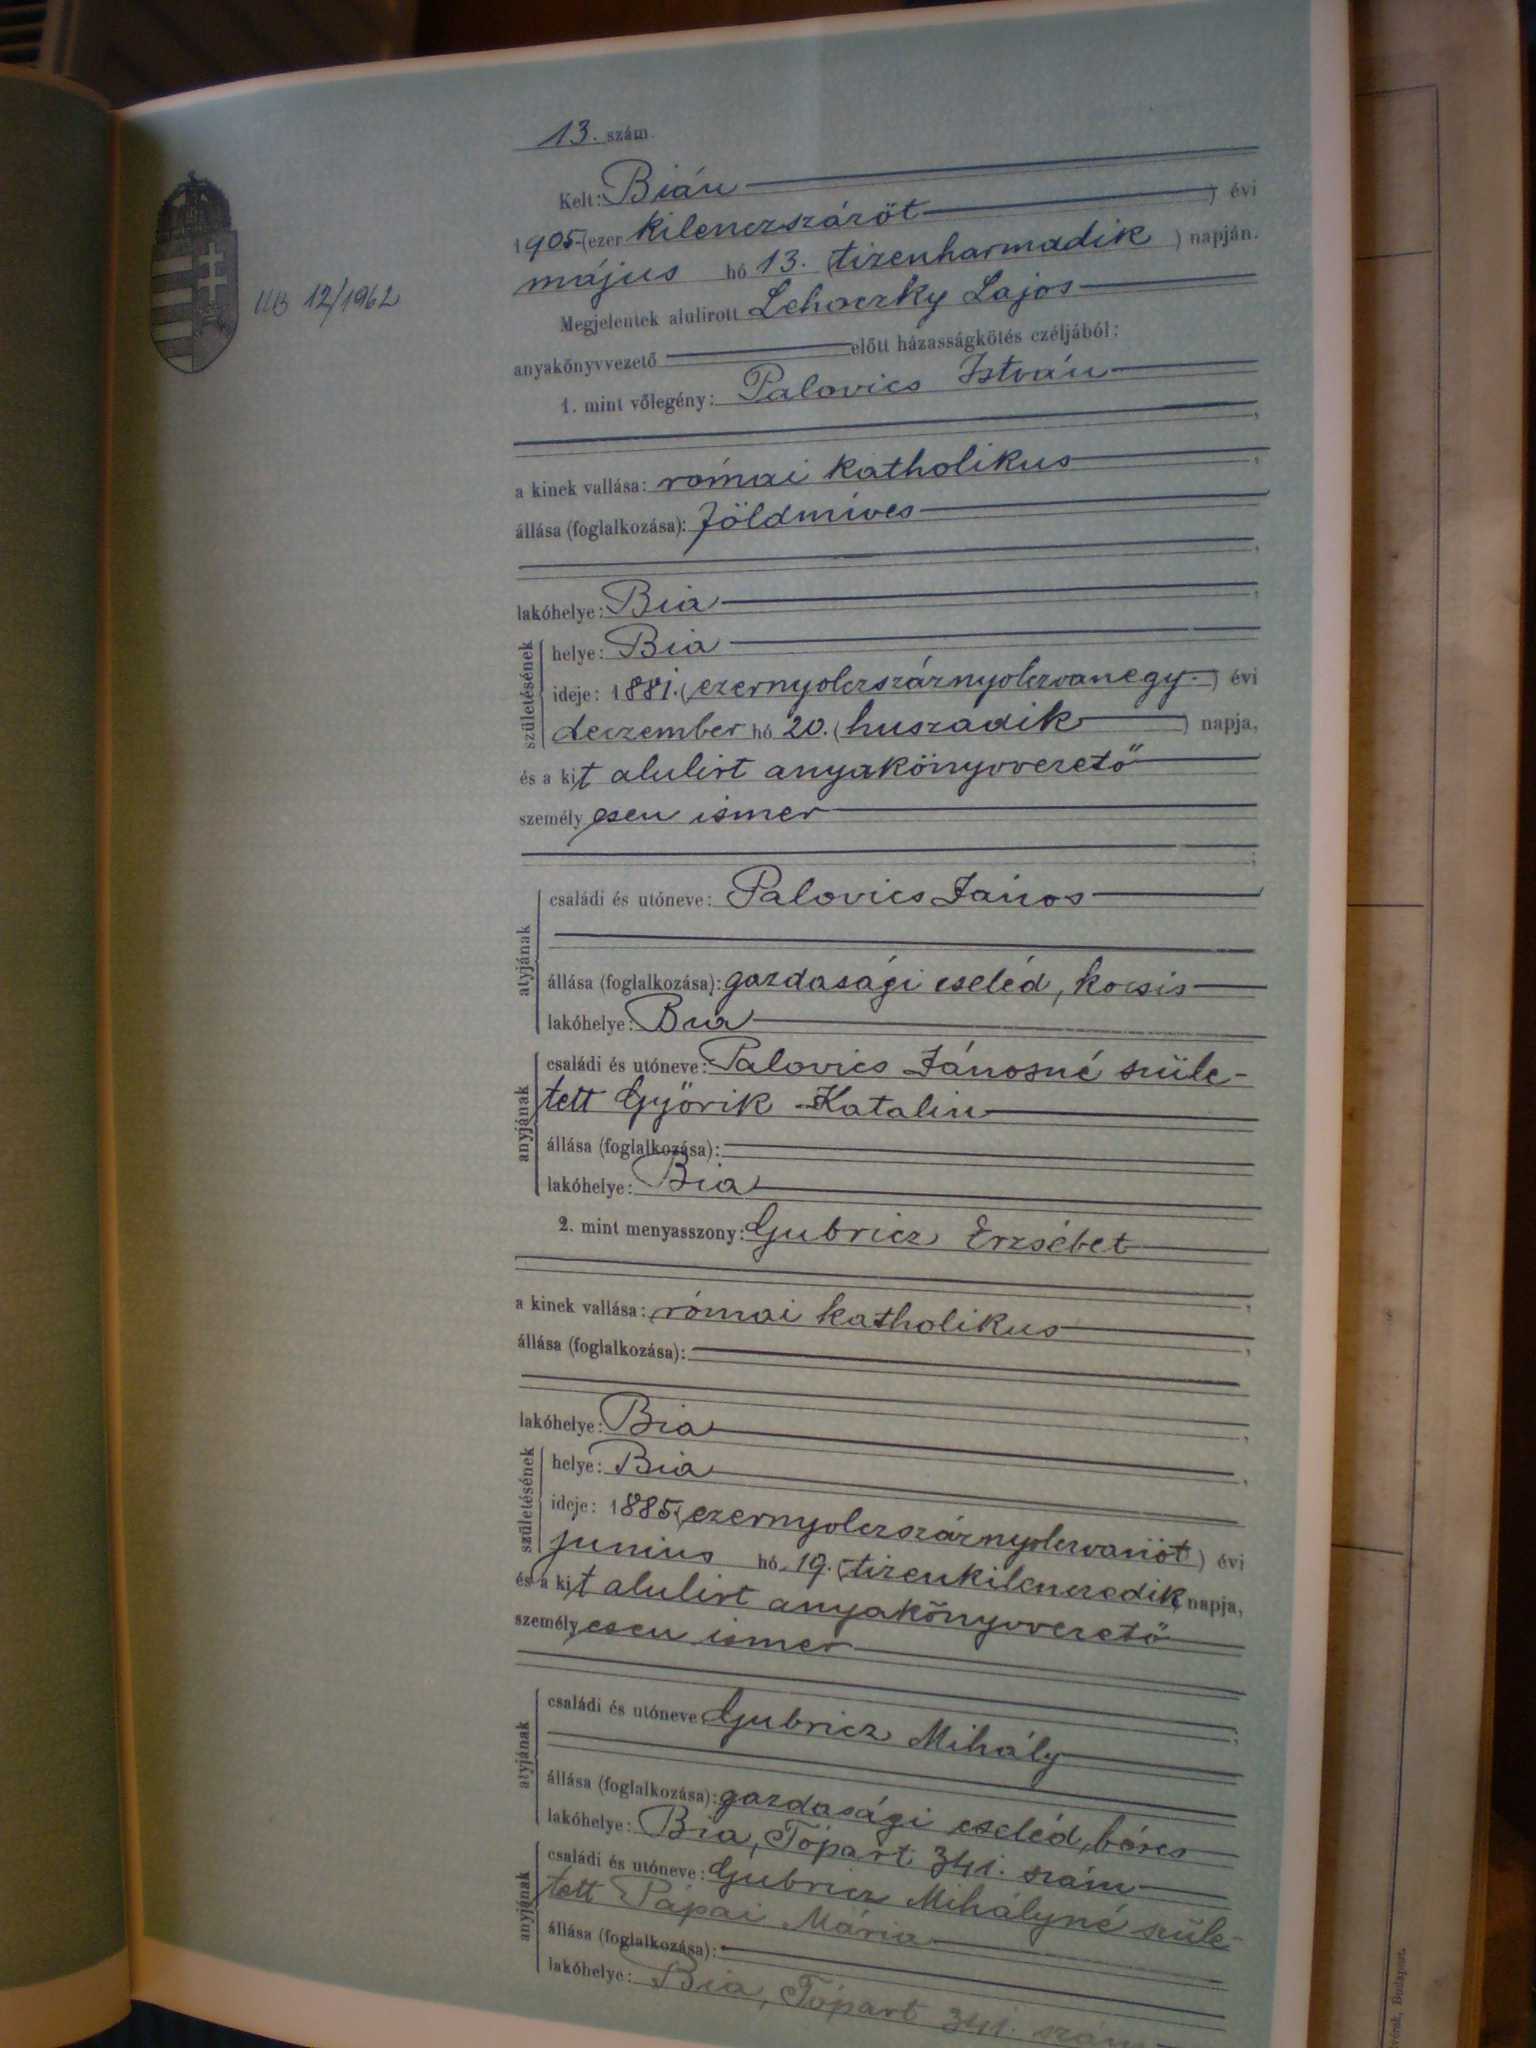 13. szám
Kelt: Bián
1905 (ezer kilenczszázöt) évi
május hó 13. (tizenharmadik) napján.
Megjelentek alulirott Lehoczky Lajos
anyakönyvvezető előtt házasságkötés czéljából:
12/1962
1. mint vőlegény: Palovics István
a kinek vallása: római katholikus
állása (foglalkozása): földmíves
lakóhelye: Bia
születésének
helye: Bia
ideje: 1881. (ezernyolczszáznyolczvanegy.) évi
deczember hó 20. (huszadik) napja,
és a kit alulirt anyakönyvvezető
személyesen ismer
atyjának
családi és utóneve: Palovics János
állása (foglalkozása): gazdasági cseléd, kocsis
lakóhelye: Bia
anyjának
családi és utóneve: Palovics Jánosné szüle-
tett Győrik Katalin
állása (foglalkozása):
lakóhelye: Bia
2. mint menyasszony: Gubricz Erzsébet
a kinek vallása: római katholikus
állása (foglalkozása):
lakóhelye: Bia
születésének
helye: Bia
ideje: 1885. (ezernyolczszáznyolczvanöt) évi
junius hó 19. (tizenkilenczedik napja,
és a kit alulirt anyakönyvvezető
személyesen ismer
atyjának
családi és utóneve Gubricz Mihály
állása (foglalkozása): gazdasági cseléd, béres
lakóhelye: Bia, Tópart 341. szám
anyjának
családi és utóneve: Gubricz Mihályné szüle-
tett Pápai Mária
állása (foglalkozása):
lakóhelye: Bia, Tópart 341. szám
Budapest.